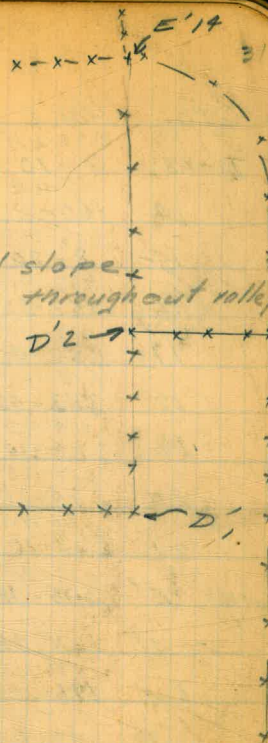 E'14
3
slope
throughout valley
D'2
D'1